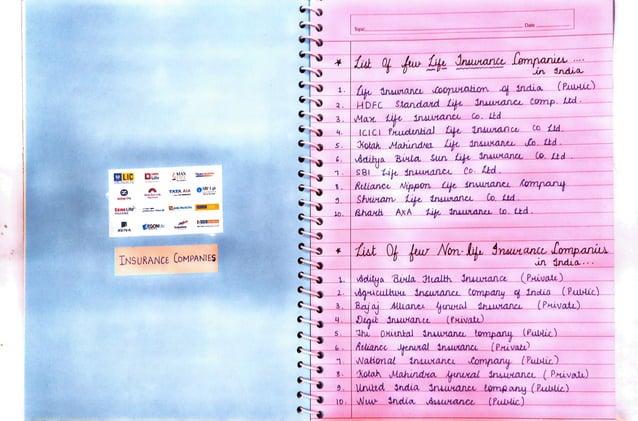 LIC
MAX
TATA AIA
SBI Life
AVIVA
AEGON Life
INSURANCE COMPANIES
Topic
Date
* List Of few Life Insurance Companies ....
in India
1. Life Insurance Cooporation of India (Public)
2. HDFC Standard Life Insurance Comp. Ltd.
3. Max Life Insurance Co. Ltd
4. ICICI Prudential Life Insurance Co Ltd.
5. Kotak Mahindra Life Insurance Co. Ltd.
6. Aditya Birla Sun Life Insurance Co. Ltd.
7. SBI Life Insurance Co. Ltd.
8. Reliance Nippon Life Insurance Company
9. Shriram Life Insurance Co. Ltd.
10. Bharti AXA Life Insurance Co. Ltd.
* List Of few Non-life Insurance Companies
in India...
1. Aditya Birla Health Insurance (Private)
2. Agriculture Insurance Company of India (Public)
3. Bajaj Allianz General Insurance (Private)
4. Digit Insurance (Private)
5. The Oriental Insurance Company (Public)
6. Reliance General Insurance (Private)
7. National Insurance Company (Public)
8. Kotak Mahindra General Insurance (Private)
9. United India Insurance Company (Public)
10. New India Assurance (Public)